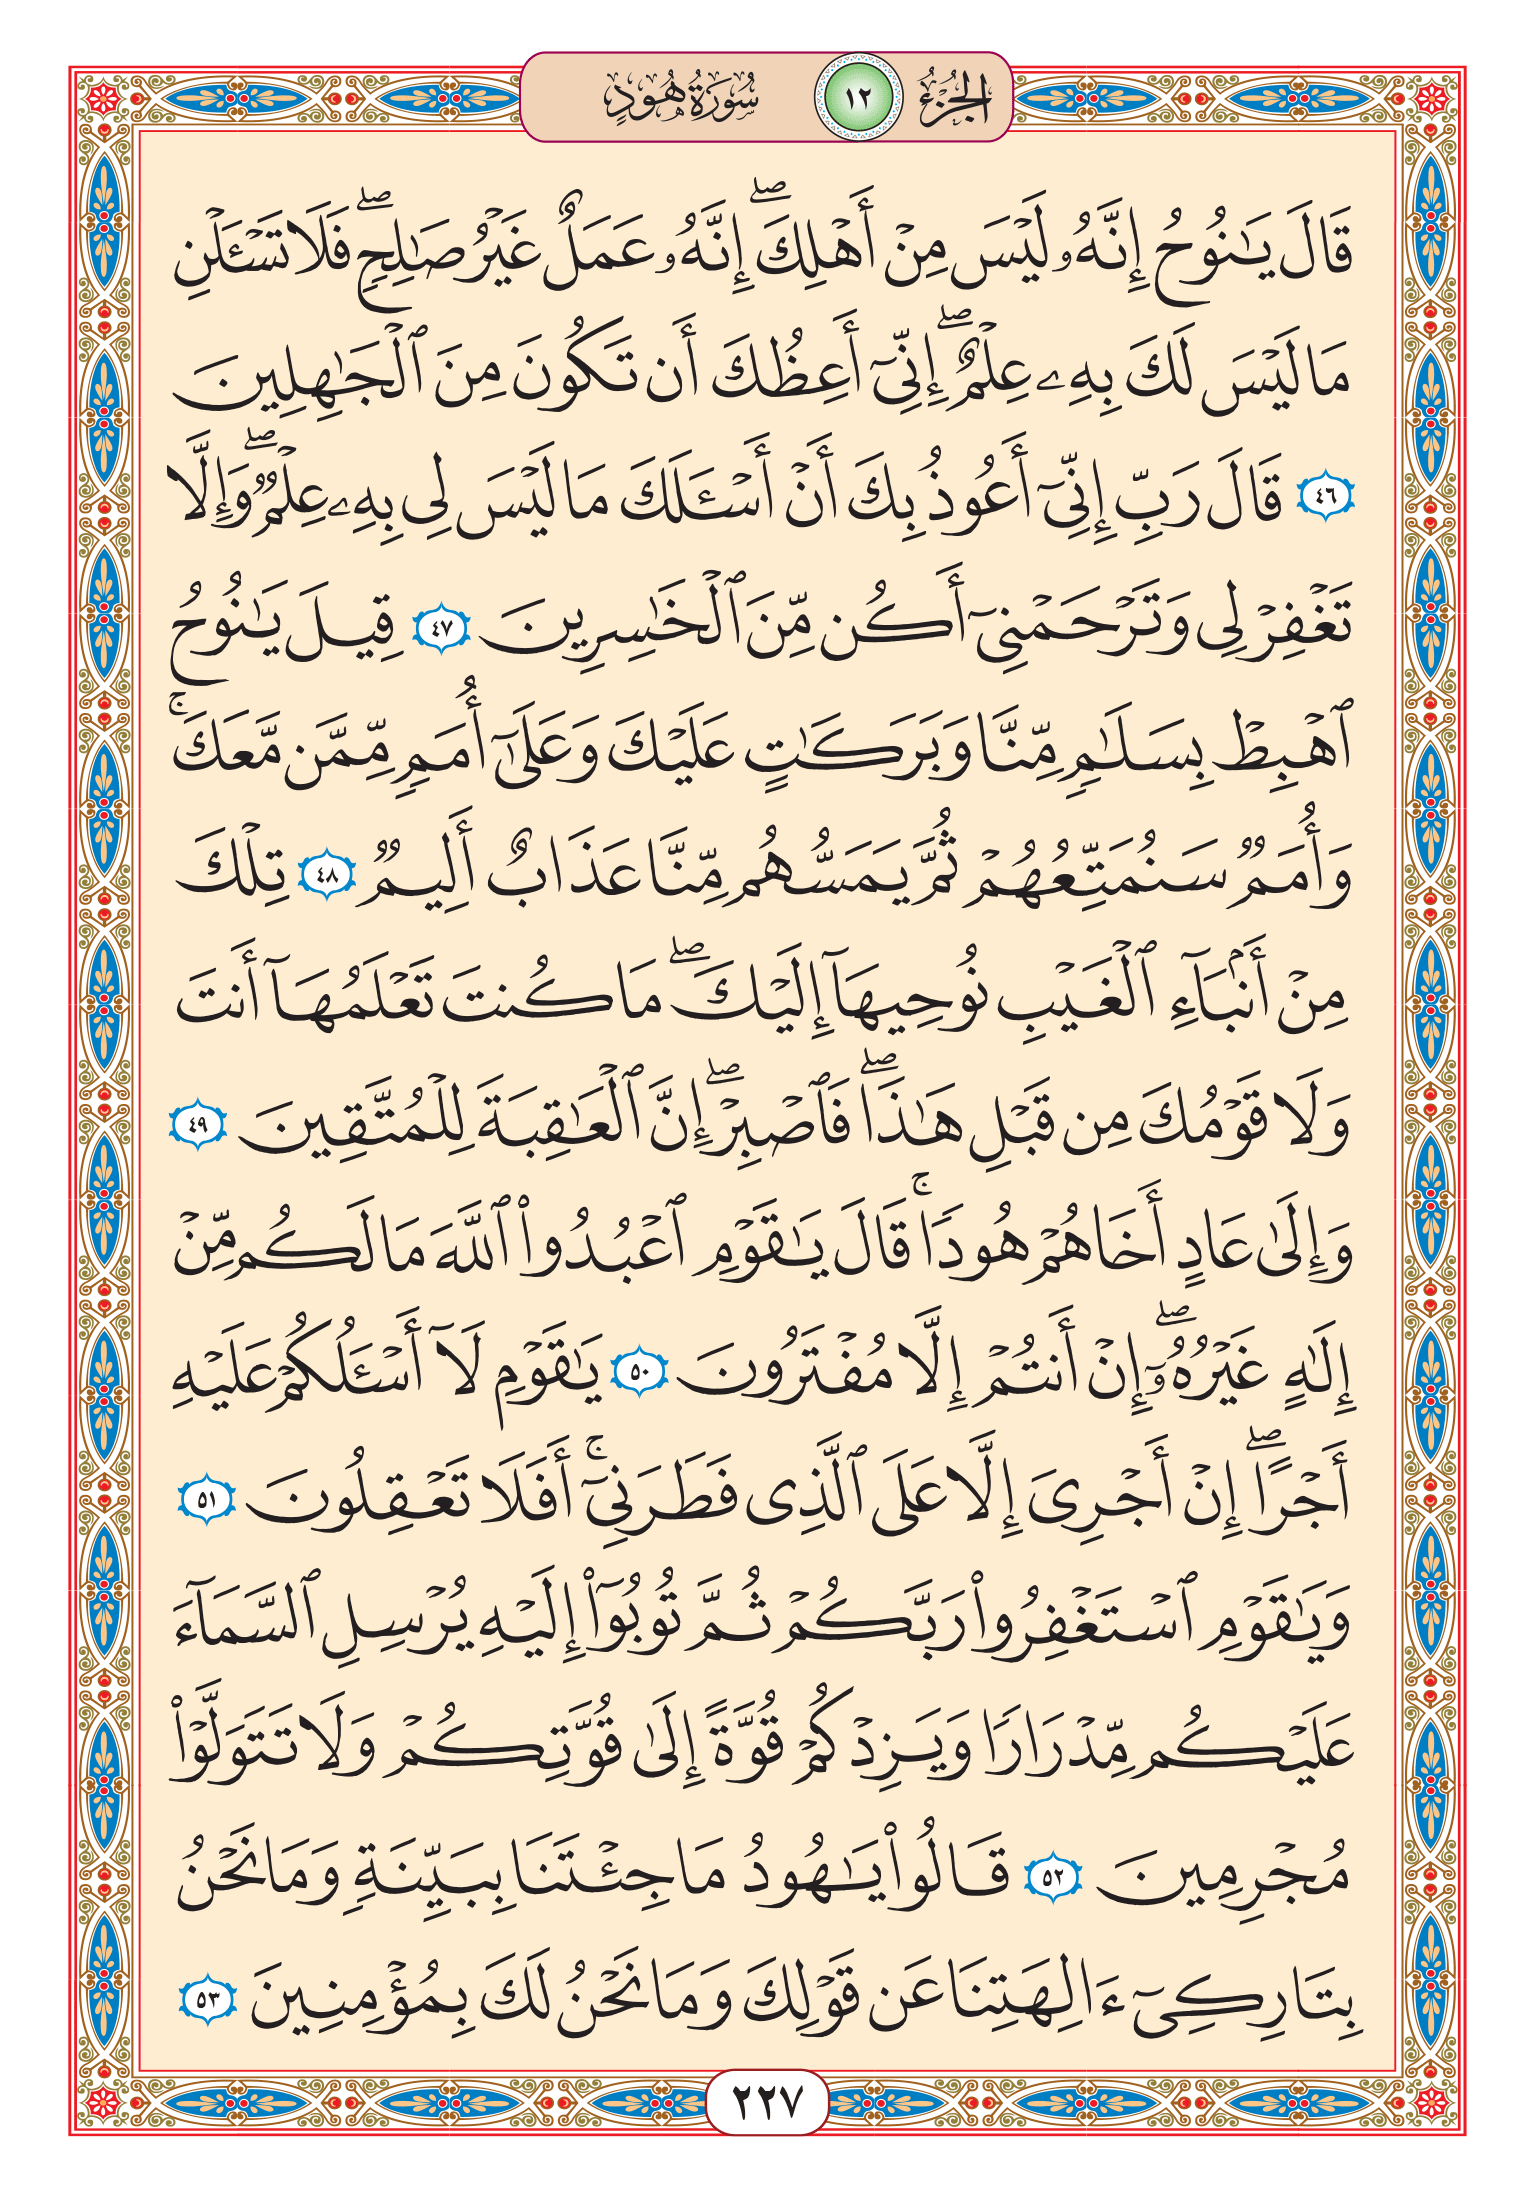 الجُزْءُ ١٢ سُورَةُ هُودٍ
قَالَ يَـٰنُوحُ إِنَّهُۥ لَيْسَ مِنْ أَهْلِكَ ۖ إِنَّهُۥ عَمَلٌ غَيْرُ صَـٰلِحٍ ۖ فَلَا تَسْـَٔلْنِ
مَا لَيْسَ لَكَ بِهِۦ عِلْمٌ ۖ إِنِّىٓ أَعِظُكَ أَن تَكُونَ مِنَ ٱلْجَـٰهِلِينَ
٤٦ قَالَ رَبِّ إِنِّىٓ أَعُوذُ بِكَ أَنْ أَسْـَٔلَكَ مَا لَيْسَ لِى بِهِۦ عِلْمٌ ۖ وَإِلَّا
تَغْفِرْ لِى وَتَرْحَمْنِىٓ أَكُن مِّنَ ٱلْخَـٰسِرِينَ ٤٧ قِيلَ يَـٰنُوحُ
ٱهْبِطْ بِسَلَـٰمٍ مِّنَّا وَبَرَكَـٰتٍ عَلَيْكَ وَعَلَىٰٓ أُمَمٍ مِّمَّن مَّعَكَ ۚ
وَأُمَمٌ سَنُمَتِّعُهُمْ ثُمَّ يَمَسُّهُم مِّنَّا عَذَابٌ أَلِيمٌ ٤٨ تِلْكَ
مِنْ أَنۢبَآءِ ٱلْغَيْبِ نُوحِيهَآ إِلَيْكَ ۖ مَا كُنتَ تَعْلَمُهَآ أَنتَ
وَلَا قَوْمُكَ مِن قَبْلِ هَـٰذَا ۖ فَٱصْبِرْ ۖ إِنَّ ٱلْعَـٰقِبَةَ لِلْمُتَّقِينَ ٤٩
وَإِلَىٰ عَادٍ أَخَاهُمْ هُودًا ۚ قَالَ يَـٰقَوْمِ ٱعْبُدُوا۟ ٱللَّهَ مَا لَكُم مِّنْ
إِلَـٰهٍ غَيْرُهُۥٓ ۖ إِنْ أَنتُمْ إِلَّا مُفْتَرُونَ ٥٠ يَـٰقَوْمِ لَآ أَسْـَٔلُكُمْ عَلَيْهِ
أَجْرًا ۖ إِنْ أَجْرِىَ إِلَّا عَلَى ٱلَّذِى فَطَرَنِىٓ ۚ أَفَلَا تَعْقِلُونَ ٥١
وَيَـٰقَوْمِ ٱسْتَغْفِرُوا۟ رَبَّكُمْ ثُمَّ تُوبُوٓا۟ إِلَيْهِ يُرْسِلِ ٱلسَّمَآءَ
عَلَيْكُم مِّدْرَارًا وَيَزِدْكُمْ قُوَّةً إِلَىٰ قُوَّتِكُمْ وَلَا تَتَوَلَّوْا۟
مُجْرِمِينَ ٥٢ قَالُوا۟ يَـٰهُودُ مَا جِئْتَنَا بِبَيِّنَةٍ وَمَا نَحْنُ
بِتَارِكِىٓ ءَالِهَتِنَا عَن قَوْلِكَ وَمَا نَحْنُ لَكَ بِمُؤْمِنِينَ ٥٣
٢٢٧